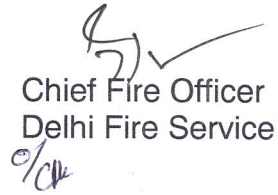 Chief Fire Officer
Delhi Fire Service